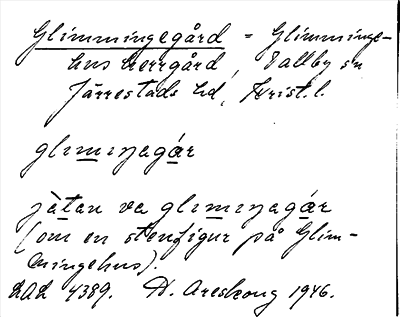 Glimmingegård = Glimminge-
hus herrgård, Vallby sn
Järrestads hd, Krist. l.
glımıŋagár
jàtan va glımıŋagár
(om en stenfigur på Glim-
mingehus).
LAL 4389. D. Areskoug 1946.